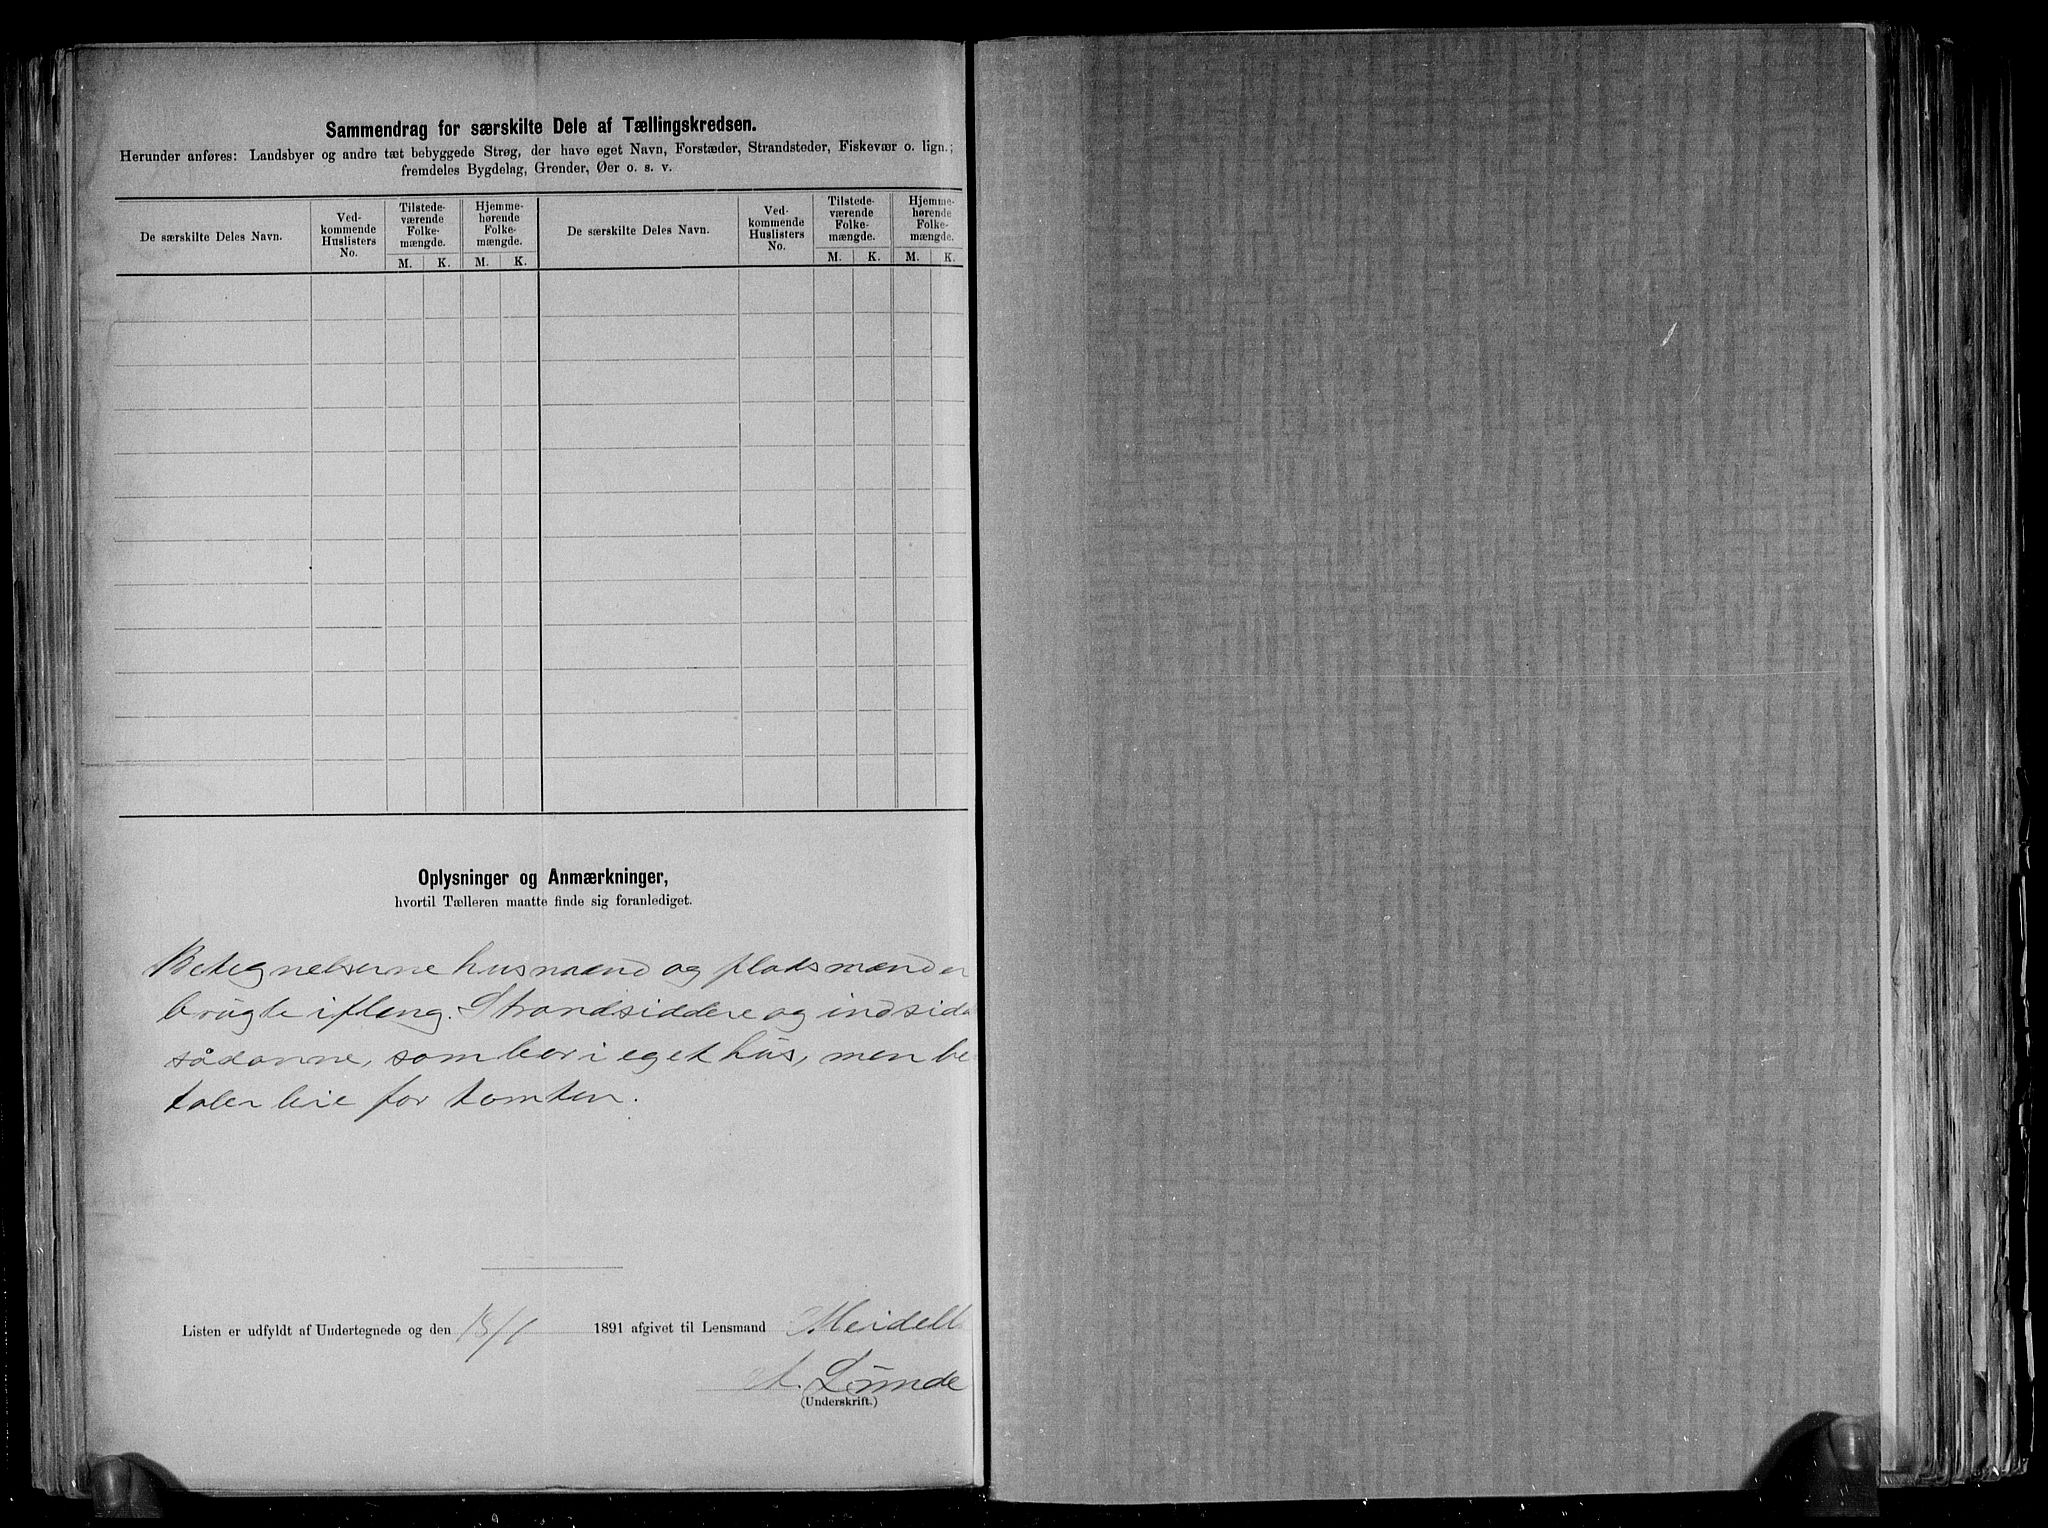 Sammendrag for særskilte Dele af Tællingskredsen.
Herunder anføres: Landsbyer og andre tæt bebyggede Strøg, der have eget Navn, Forstæder, Strandsteder, Fiskevær o. lign.;
fremdeles Bygdelag, Grender, Øer o. s. v.
De særskilte Deles Navn.
Ved-
kommende
Huslisters
No.
Tilstede-
værende
Folke-
mængde.
M. K.
Hjemme-
hørende
Folke-
mængde.
M. K.
De særskilte Deles Navn.
Ved-
kommende
Huslisters
No.
Tilstede-
værende
Folke-
mængde.
M. K.
Hjemme-
hørende
Folke-
mængde.
M. K.
Oplysninger og Anmærkninger,
hvortil Tælleren maatte finde sig foranlediget.
Betegnelserne husmænd og pladsmænd er
brugte i fleng. Strandsiddere og indsid
sådanne, som bor i eget hus, men be
taler leie for tomten.
Listen er udfyldt af Undertegnede og den 13/1 1891 afgivet til Lensmand Meidell
A. Lunde
(Underskrift.)